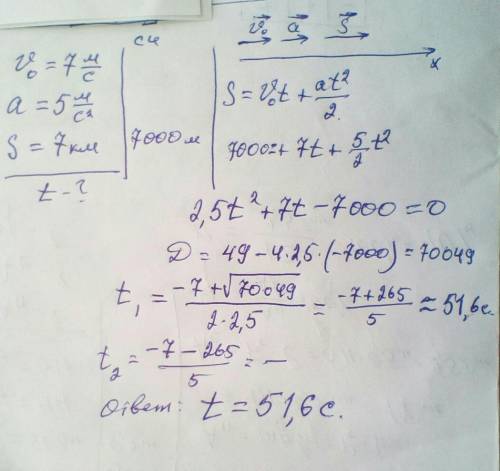 v⃗₀ a⃗ S⃗
x
v₀ = 7 м/с
a = 5 м/с²
S = 7 км
t - ?
си
7000 м
S = v₀t + at²/2.
7000 = + 7t + 5/2 t²
2,5t² + 7t - 7000 = 0
D = 49 - 4·2,5·(-7000) = 70049
t₁ = (-7 + √70049)/(2·2,5) = (-7 + 265)/5 ≈ 51,6 с.
t₂ = (-7 - 265)/5 = -
Ответ: t = 51,6 с.